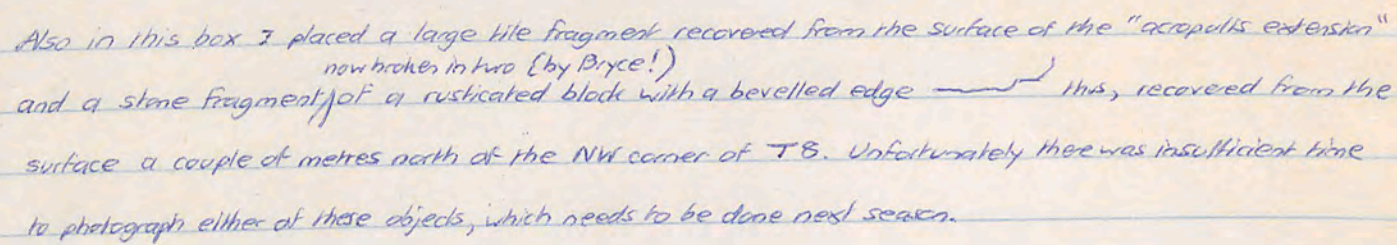 Also in this box I placed a large tile fragment recovered from the surface of the "acropolis extension"
now broken in two (by Bryce!)
and a stone fragment of a rusticated block with a bevelled edge this, recovered from the
surface a couple of metres north of the NW corner of T8. Unfortunately there was insufficient time
to photograph either of these objects, which needs to be done next season.